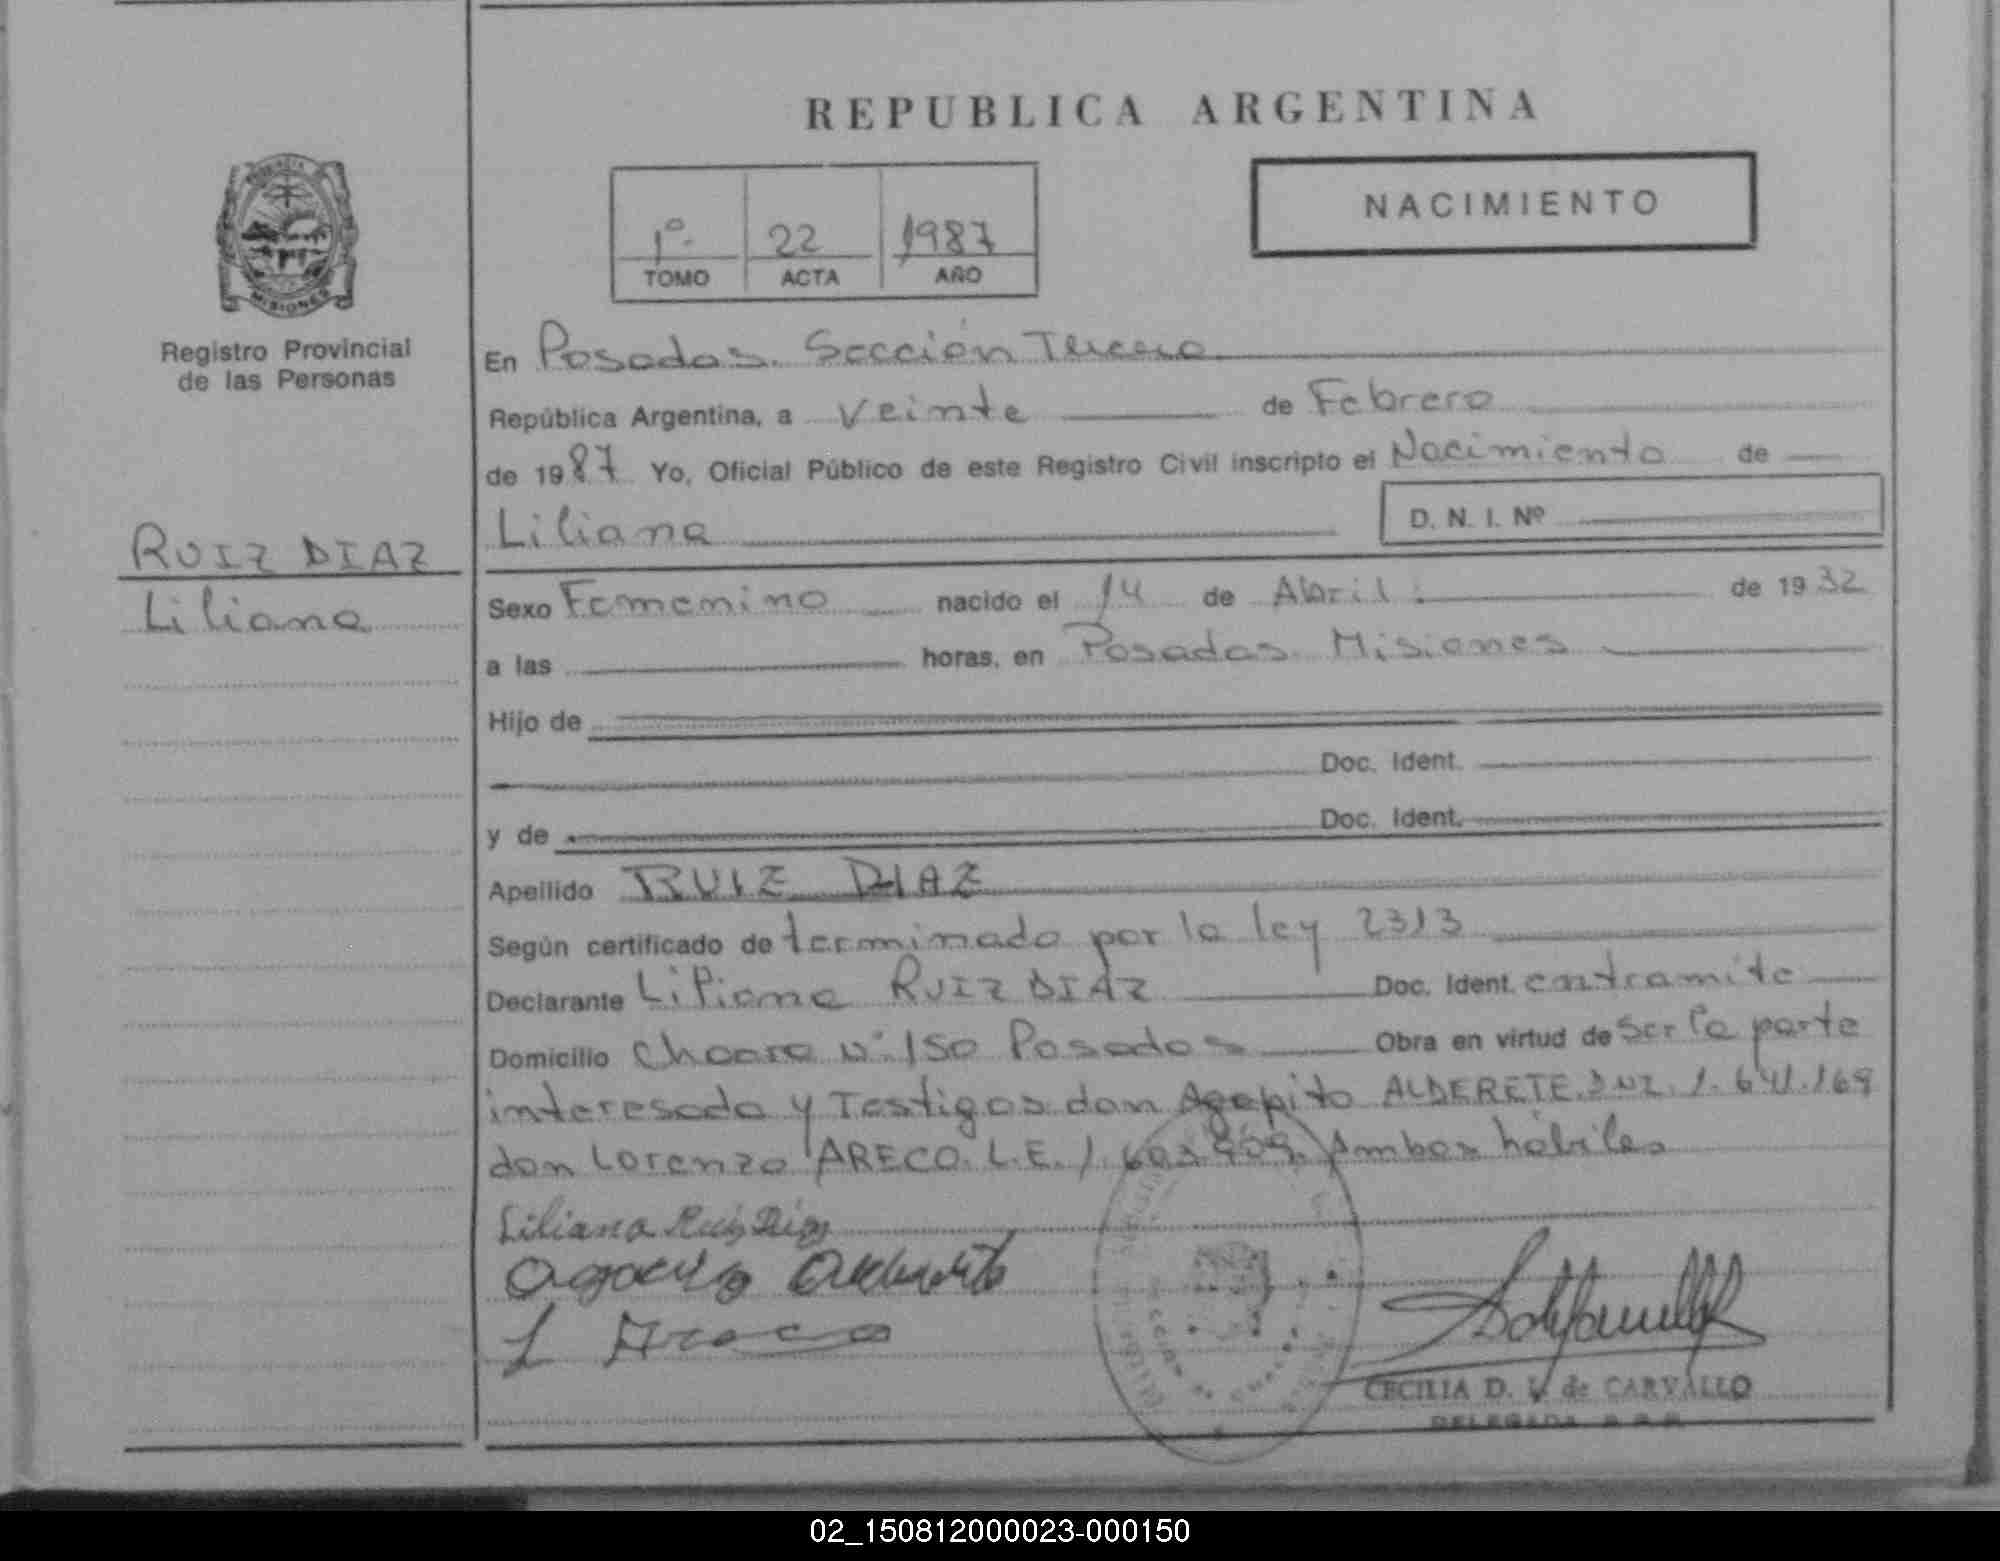 REPUBLICA ARGENTINA
NACIMIENTO
1º 22 1987
TOMO ACTA AÑO
MISIONES
Registro Provincial
de las Personas
RUIZ DIAZ
Liliana
En Posadas. Sección Tercera
República Argentina, a Veinte de Febrero
de 1987 Yo, Oficial Público de este Registro Civil inscripto el Nacimiento de
Liliana D. N. I. Nº
Sexo Femenino nacido el 14 de Abril. de 1932
a las horas, en Posadas Misiones
Hijo de
Doc. Ident.
y de Doc. Ident.
Apellido RUIZ DIAZ
Según certificado de terminado por la ley 2313
Declarante Liliana RUIZ DIAZ Doc. Ident. entramite
Domicilio Chacra Nº 150 Posadas Obra en virtud de ser la parte
interesada y Testigos don Agapito ALDERETE. DNI. 1.641.169
don Lorenzo ARECO. L.E. 1.603.909. Ambos hábiles
Liliana Ruiz Diaz
L Areco
CECILIA D. V. de CARVALLO
DELEGADA
02_150812000023-000150